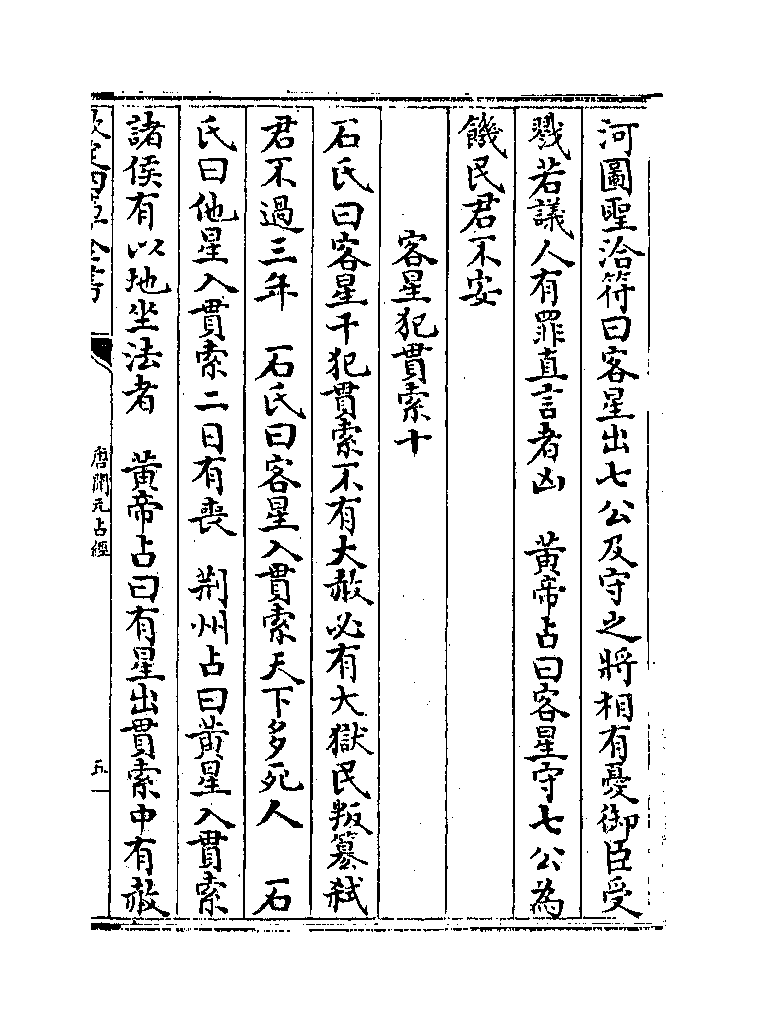 河圖聖洽符曰客星出七公及守之將相有憂御臣受
戮若議人有罪直言者凶　黄帝占曰客星守七公為
饑民君不安
客星犯貫索十
石氏曰客星干犯貫索不有大赦必有大獄民叛簒弑
君不過三年　石氏曰客星入貫索天下多死人　石
氏曰他星入貫索二日有喪　荆州占曰黄星入貫索
諸侯有以地坐法者　黄帝占曰有星出貫索中有赦
欽定四庫全書
唐開元占經
五